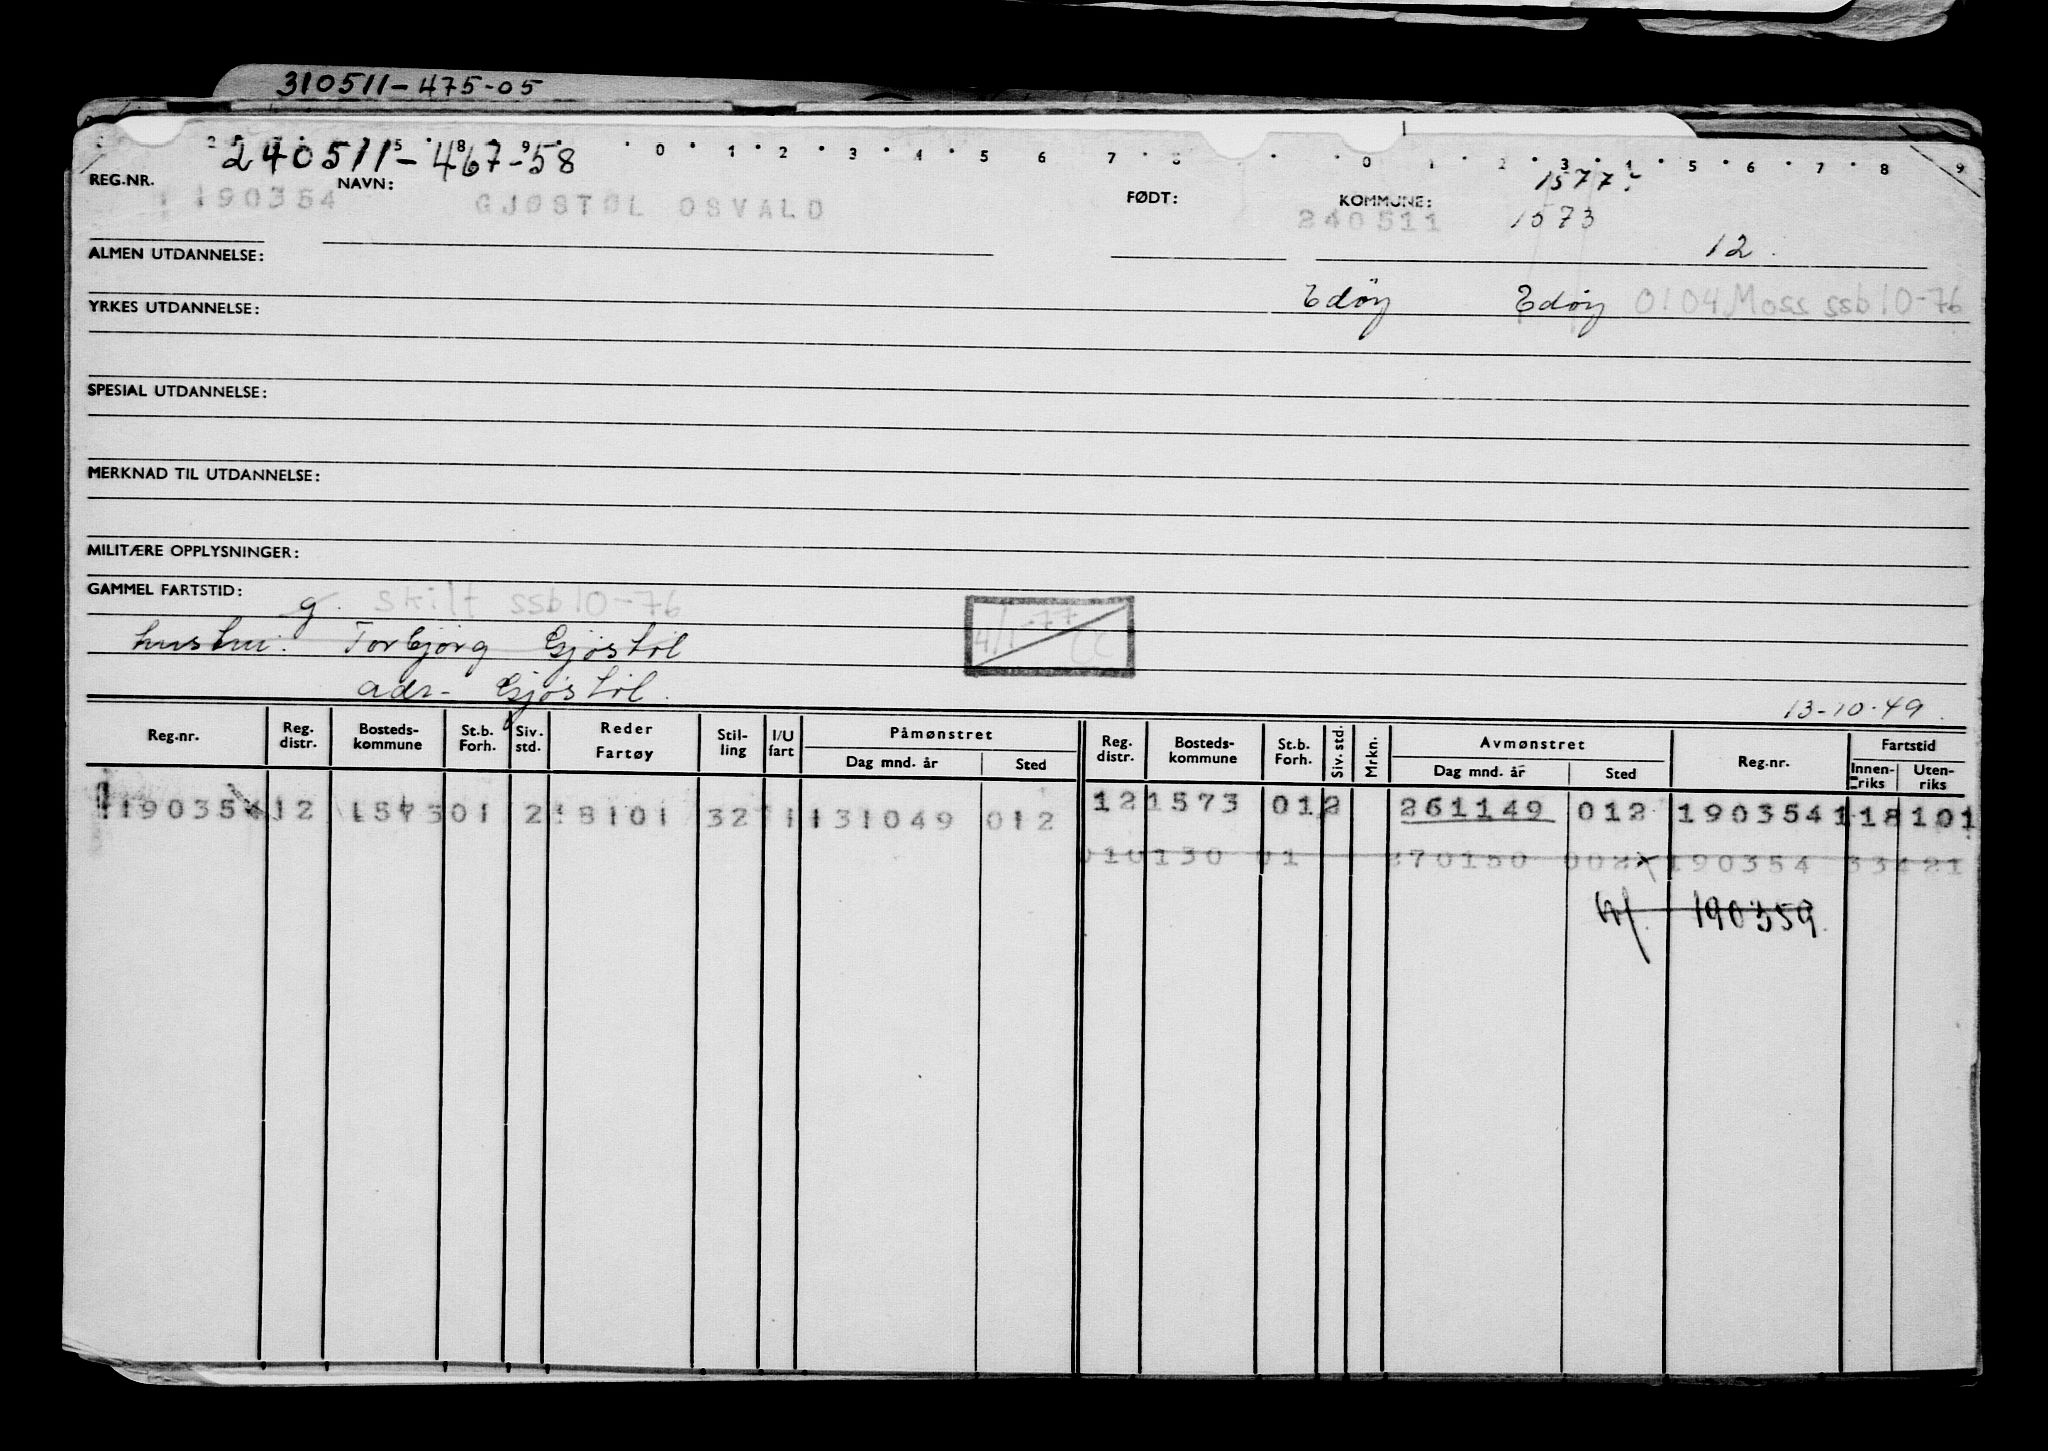 310511-475-05
240511-467-58
REG.NR. NAVN: FØDT: KOMMUNE: 1577
190354 GJØSTØL OSVALD 240511 1573
12.
ALMEN UTDANNELSE:
Edøy Edøy 0104 Moss ssb 10-76
YRKES UTDANNELSE:
SPESIAL UTDANNELSE:
MERKNAD TIL UTDANNELSE:
MILITÆRE OPPLYSNINGER:
GAMMEL FARTSTID:
g. skilt ssb 10-76
4/1-77
hustru: Torbjørg Gjøstøl
adr- Gjøstøl.
13-10-49.
Reg.nr. Reg. distr. Bosteds-kommune St.b. Forh. Siv. std. Reder Fartøy Stil-ling I/U fart Påmønstret Dag mnd. år Sted Reg. distr. Bosteds-kommune St.b. Forh. Siv. std. Mrkn. Avmønstret Dag mnd. år Sted Reg.nr. Fartstid Innen-riks Uten-riks
190354 12 1573 01 2 18101 32 1 131049 012 12 1573 01 2 261149 012 190354 118101
010130 01 270150 002 190354 33421
190359.